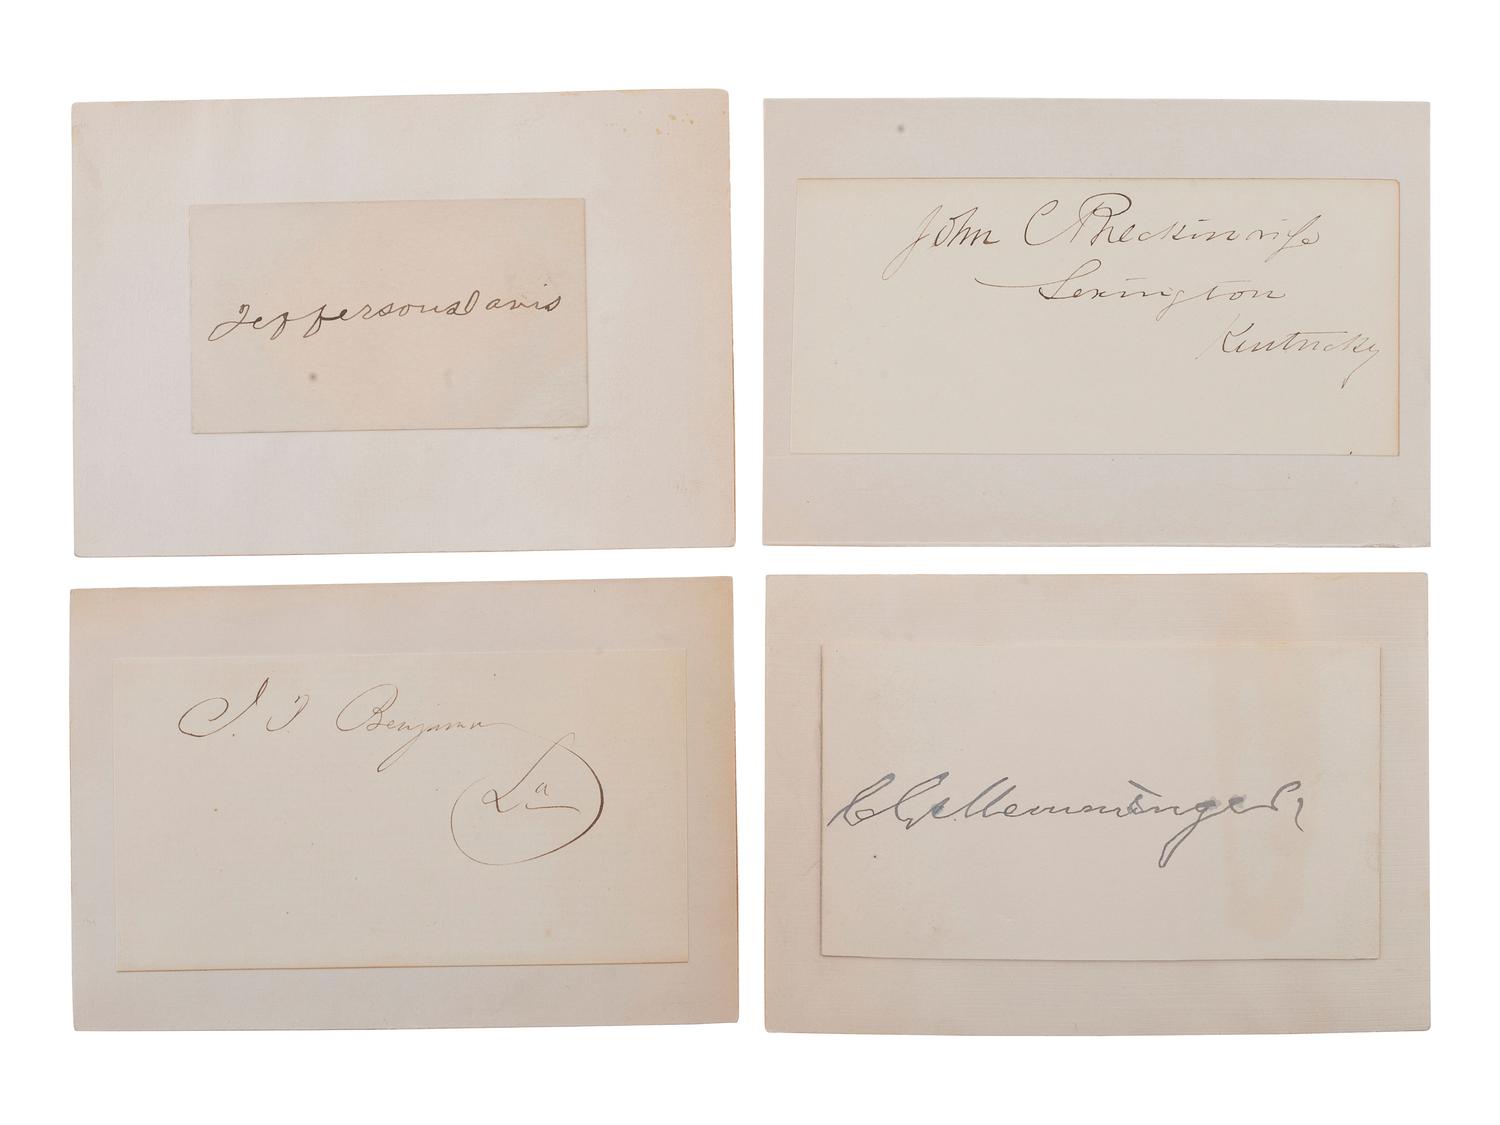 Jefferson Davis
John C Breckinridge
Lexington
Kentucky
J. P. Benjamin
La
C G Memminger